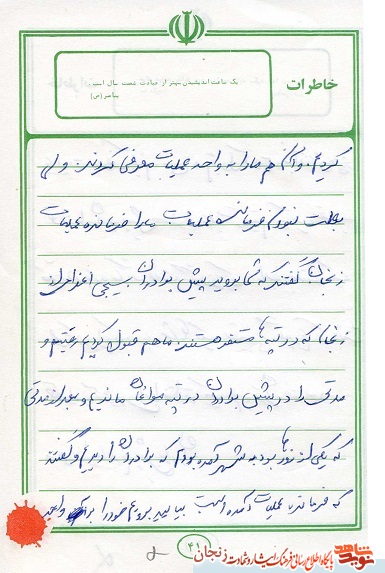 خاطرات
یک ساعت اندیشیدن بهتر از عبادت شصت سال است
پیامبر (ص)
کردیم و آن هم ما را به واحد عملیات معرفی کردند ولی
بعلت نبودن فرمانده عملیات ما را فرمانده عملیات
زنجان گفتند که شما بروید پیش برادران بسیجی اعزامی از
زنجان که در تپه ها مستقر هستند ما هم قبول کردیم رفتیم و
مدتی را در پیش برادران در تپه ماندیم و بعد از مدتی
که یکی از روزها بود به شهر آمده بودم که برادران را دیدم و گفتند
که فرمانده عملیات آمده است بیایید برویم خود را
۴۱
پایگاه اطلاع رسانی فرهنگ ایثار و شهادت زنجان
نوید شاهد